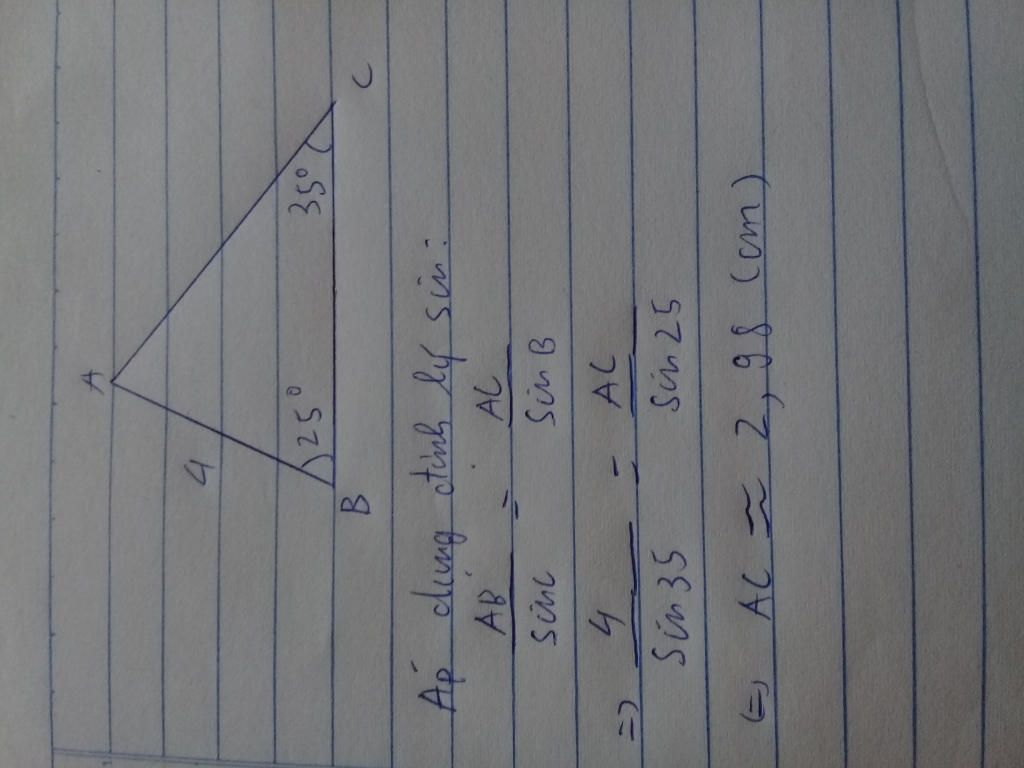 A
4
25°
35°
B
C
Áp dụng định lý sin:
AB/sinC = AC/sinB
=> 4/sin35 = AC/sin25
(=) AC ≃ 2,98 (cm)